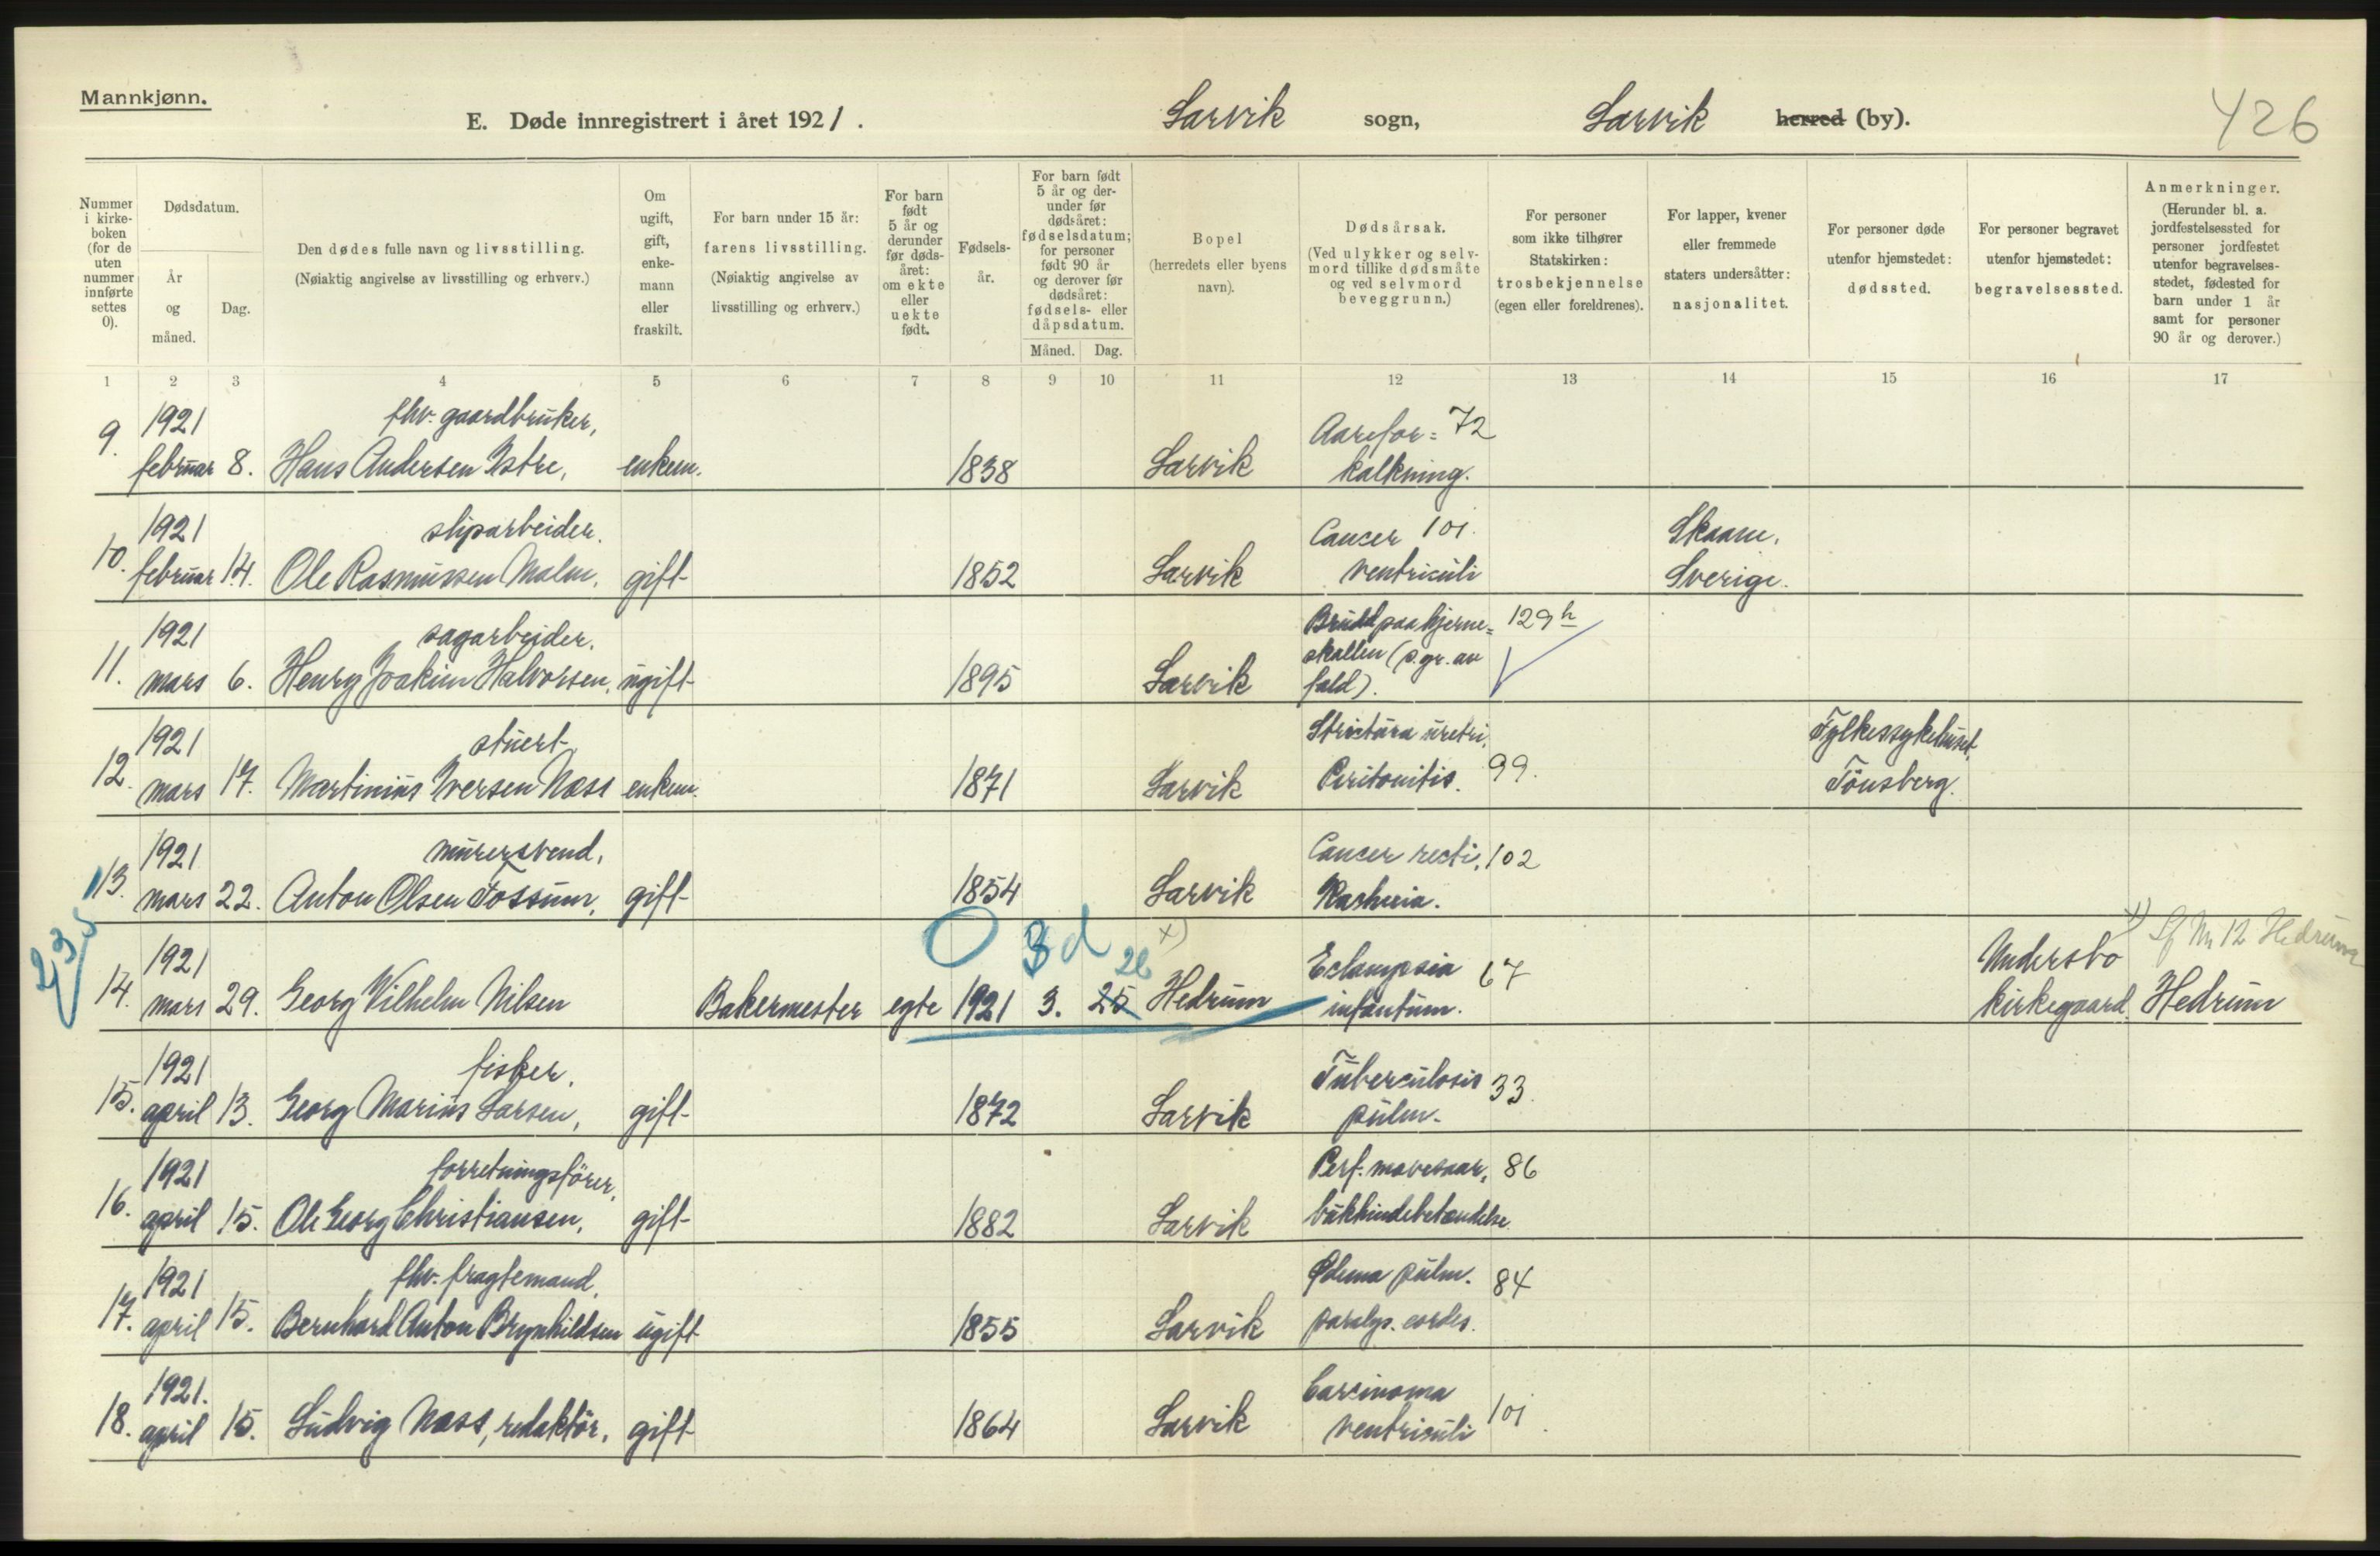 Mannkjønn.
E. Døde innregistrert i året 1921. Larvik sogn, Larvik herred (by). 426
Nummer i kirkeboken (for de uten nummer innførte settes 0).
Dødsdatum.
År og måned.
Dag.
Den dødes fulle navn og livsstilling.
(Nøiaktig angivelse av livsstilling og erhverv.)
Om ugift, gift, enkemann eller fraskilt.
For barn under 15 år: farens livsstilling.
(Nøiaktig angivelse av livsstilling og erhverv.)
For barn født 5 år og derunder før dødsåret: om ekte eller uekte født.
Fødselsår.
For barn født 5 år og derunder før dødsåret: fødselsdatum; for personer født 90 år og derover før dødsåret: fødsels- eller dåpsdatum.
Måned. Dag.
Bopel
(herredets eller byens navn).
Dødsårsak.
(Ved ulykker og selvmord tillike dødsmåte og ved selvmord beveggrunn.)
For personer som ikke tilhører Statskirken: trosbekjennelse (egen eller foreldrenes).
For lapper, kvener eller fremmede staters undersåtter: nasjonalitet.
For personer døde utenfor hjemstedet: dødssted.
For personer begravet utenfor hjemstedet: begravelsessted.
Anmerkninger.
(Herunder bl. a. jordfestelsessted for personer jordfestet utenfor begravelsesstedet, fødested for barn under 1 år samt for personer 90 år og derover.)
1 2 3 4 5 6 7 8 9 10 11 12 13 14 15 16 17
1921 fhv. gaardbruker, Aarefor= 72
9. februar 8. Hans Andersen Istre, enkem. 1838 Larvik kalkning.
1921 sliparbeider. Cancer 101. Skaane,
10. februar 14. Ole Rasmussen Malm, gift 1852 Larvik ventriculi Sverige.
1921 sagarbeider. Brudd paa hjerne= 129 h
skallen (p. gr. av
11. mars 6. Henry Joakim Halvorsen, ugift 1895 Larvik fald).
1921 stuert Strictura uretri, Fylkessykehuset,
12. mars 17. Martinius Iversen Næss enkem. 1871 Larvik Peritonitis. 99. Tönsberg.
1921 murersvend, Cancer recti, 102
13. mars 22. Anton Olsen Fossum, gift 1854 Larvik Kacheria.
235 0 3 d 26 x) x) Nr 12 Hedrum
1921 Eclampsia 67 Undersbo
14. mars 29. Georg Wilhelm Nilsen Bakermester egte 1921 3. 25 Hedrum infantum. kirkegaard. Hedrum
1921 fisker. Tuberculosis 33.
15. april 13. Georg Marius Larsen, gift 1872 Larvik pulm.
1921 forretningsförer, Perf. mavesaar, 86
16. april 15. Ole Georg Christiansen, gift 1882 Larvik bukhindebetændelse.
1921 fhv. fragtemand, Ødema pulm. 84
17. april 15. Bernhard Anton Brynhildsen ugift 1855 Larvik paralys. cordis.
1921. Carcinoma
18. april 15. Ludvig Næss, redaktör, gift 1864 Larvik ventriculi 101.